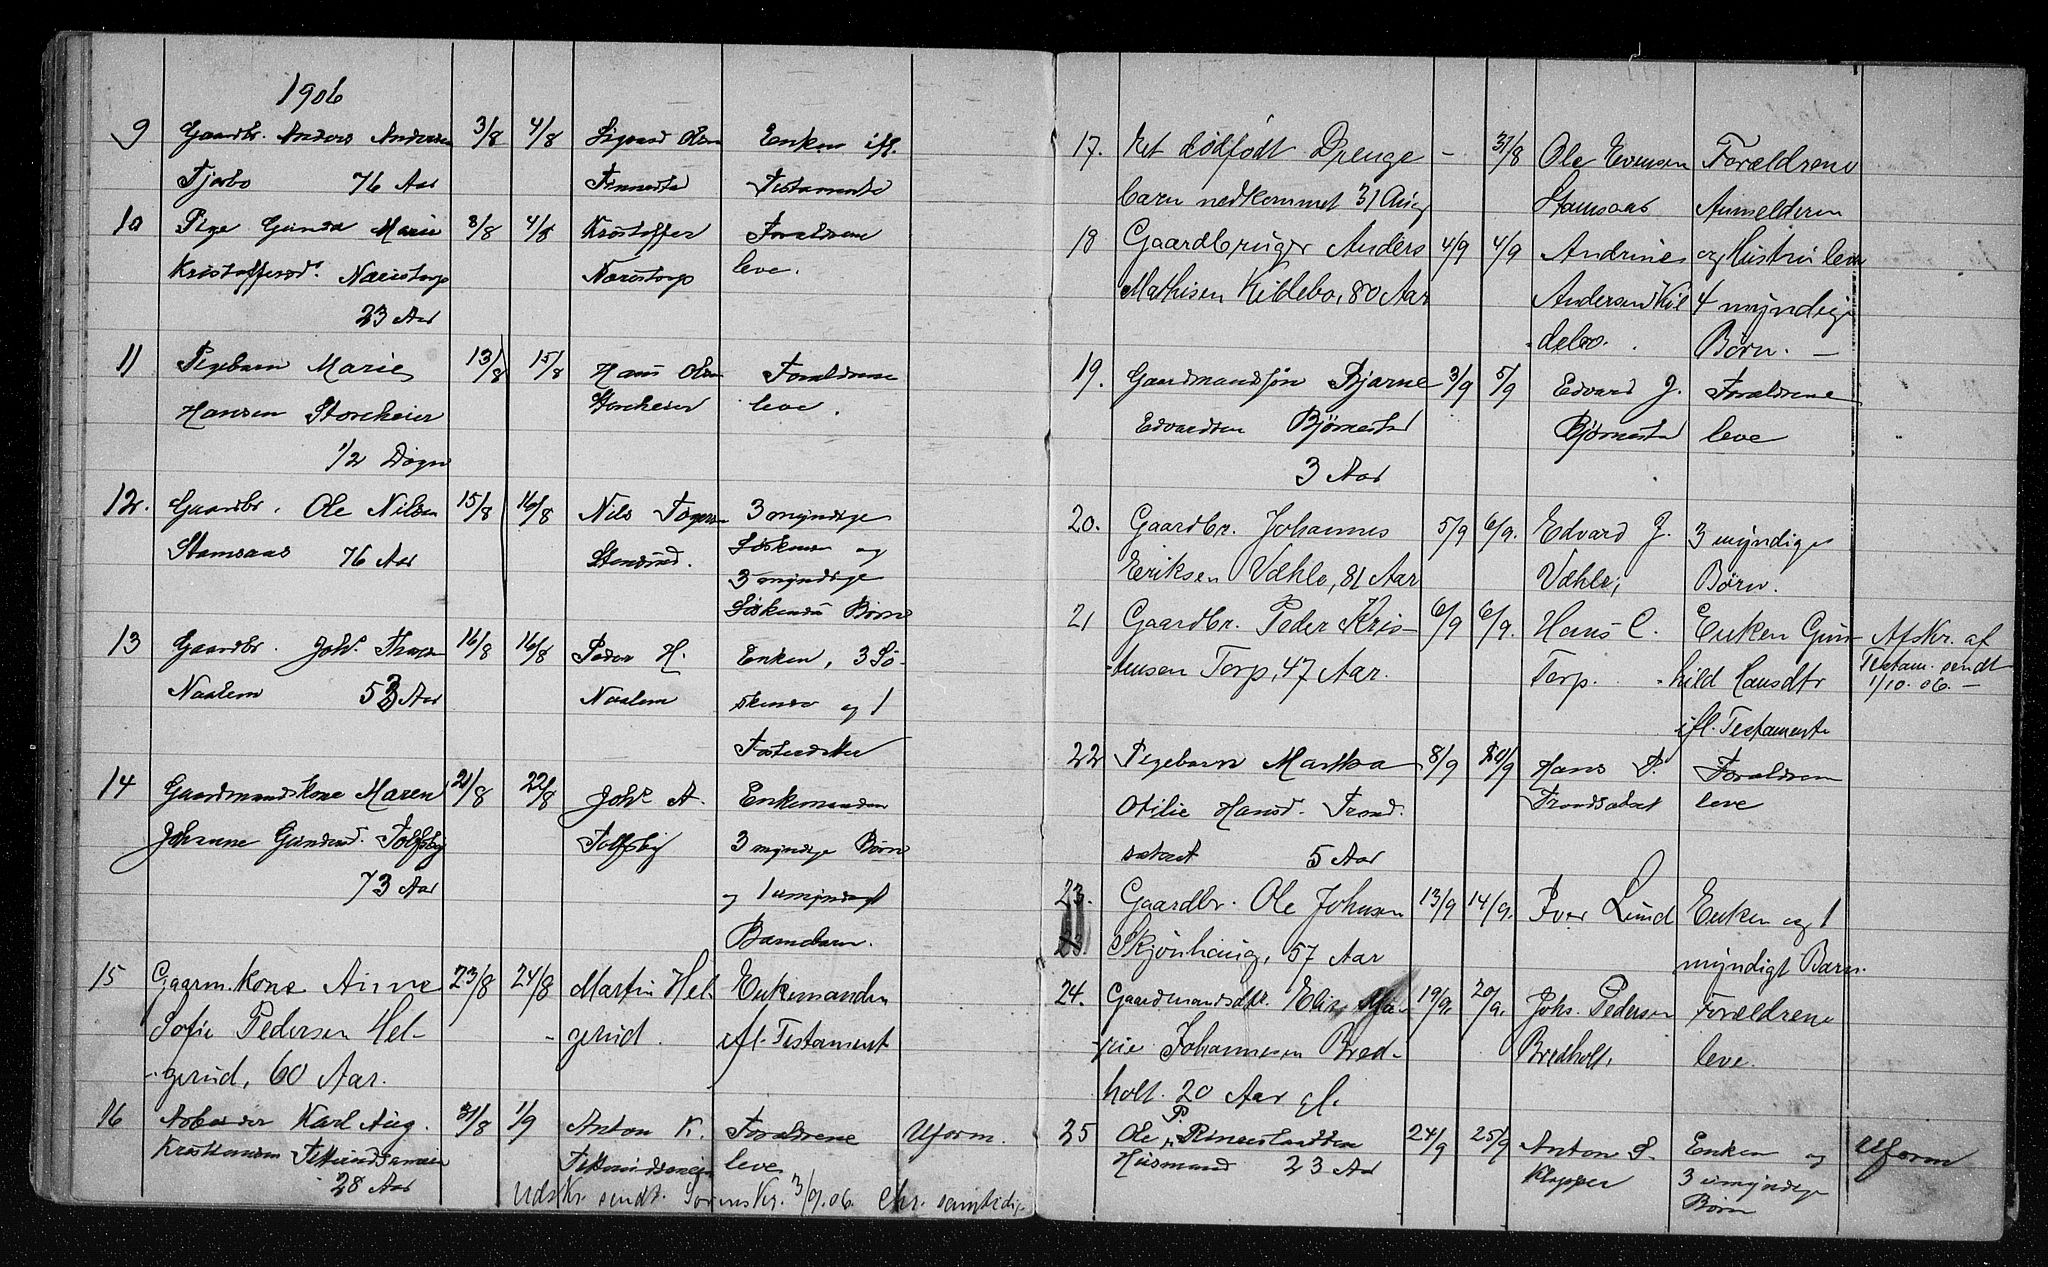 1906
9 Gaardbr. Anders Andersen 3/8 4/8 Sigvard Olsen Enken ifl.
Tjerbo 76 Aar Finnestad Testamente
10 Pige Gunda Marie 3/8 4/8 Kristoffer Forældrene
Kristoffersd. Narestorp Narestorp leve.
23 Aar
11 Pigebarn Marie 13/8 15/8 Hans Olsen Forældrene
Hansen Storeheier Storeheier leve.
1/2 Døgn
12. Gaardbr. Ole Nilsen 15/8 16/8 Nils 3 myndige
Stamsaas 76 Aar Stensrud. Søskende og
3 myndige
Søskendes Børn
13 Gaardbr. Johs. 16/8 16/8 Peder H. Enken, 3 Sø-
Naalem 53 Aar Naalem skende og 1
14 Gaardmandskone Maren 21/8 22/8 Johs. A. Enkemanden
Johanne Gundersd. Tolfsby Tolfsby 3 myndige Børn
73 Aar og 1 umyndigt
Barnebarn.
15 Gaarm. Kone Anne 23/8 24/8 Martin Hel- Enkemanden
Sofie Pedersen Hel- gerud. ifl. Testament
gerud, 60 Aar.
16 Arbeider Karl Aug. 31/8 1/9 Anton K. Forældrene Uform.
Kristiansen leve
28 Aar
Udskr. sendt. Sorenskr. 3/9.06. Chr. samtidig
17. Et dødfødt Drenge - 31/8 Ole Evensen Forældrene
barn nedkommet 31 Aug Stamsaas Anmelderen
18 Gaardbruger Anders 4/9 4/9 Andrine og Hustru leve
Mathisen Kildebo, 80 Aar Andersen Kil 4 myndige
debo. Børn. -
19. Gaardmandssøn Bjarne 3/9 5/9 Edvard J. Forældrene
Edvardsen Bjørnestad Bjørnestad leve
3 Aar
20. Gaardbr. Johannes 5/9 6/9. Edvard J. 3 myndige
Eriksen Væhle, 81 Aar Væhle, Børn.
21 Gaardbr. Peder Kris- 6/9 6/9. Hans C. Enken Gun- Afskr. af
tensen Torp, 47 Aar. Torp. hild Hansdtr Testam. sendt
ifl. Testamente 1/10.06. -
22 Pigebarn Martha 8/9 10/9 Hans P. Forældrene
Otilie Hansd. Trond- Trondsætret leve
sætret 5 Aar
23. Gaardbr. Ole Johnsen 13/9 14/9. Iver Lund Enken og 1
Skjönhaug, 57 Aar myndigt Barn.
24. Gaardmandsdtr. Elise Ma- 19/9. 20/9. Johs. Pedersen Forældrene
rie Johannesen Bred- Bredholt, leve.
holt. 20 Aar gl.
25 Ole P. 24/9 25/9 Anton S. Enken og Uform
Husmand 23 Aar Klopper 3 umyndige
Børn